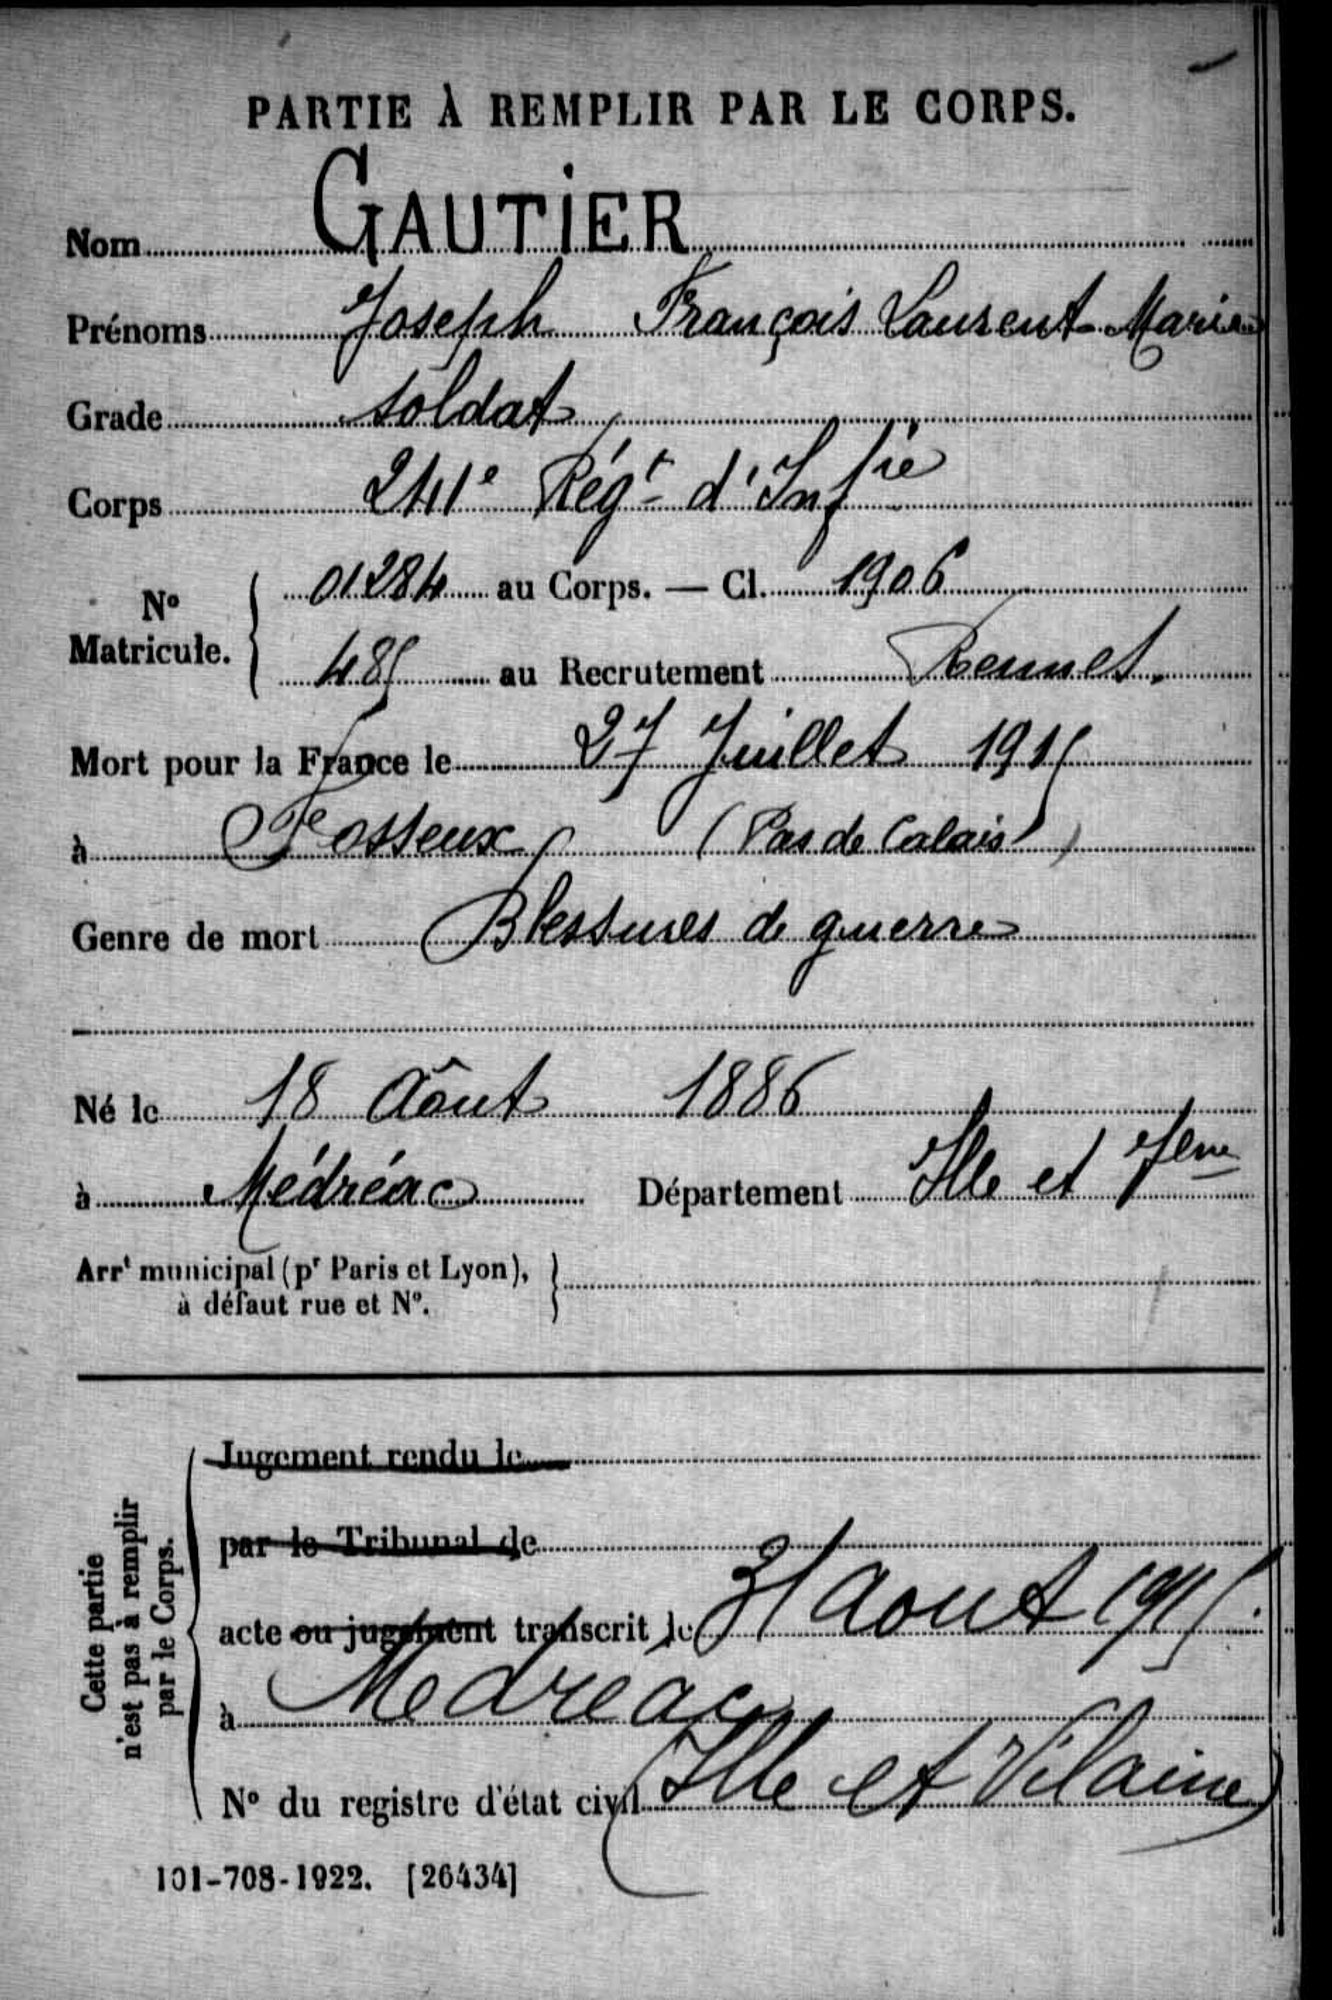 PARTIE À REMPLIR PAR LE CORPS.
Nom GAUTIER
Prénoms Joseph François Laurent Marie
Grade soldat
Corps 241e Régt d'Infie
No Matricule. 01284 au Corps. — Cl. 1906
485 au Recrutement Rennes.
Mort pour la France le 27 Juillet 1915
à Fosseux (Pas de Calais)
Genre de mort Blessures de guerre
Né le 18 Aôut 1886
à Médréac Département Ille et Vlne
Arrt municipal (pr Paris et Lyon),
à défaut rue et No.
Cette partie
n'est pas à remplir
par le Corps.
Jugement rendu le
par le Tribunal de
acte ou jugement transcrit le 31 Aout 1915.
à Medreac
No du registre d'état civil (Ille et Vilaine)
101-708-1922. [26434]